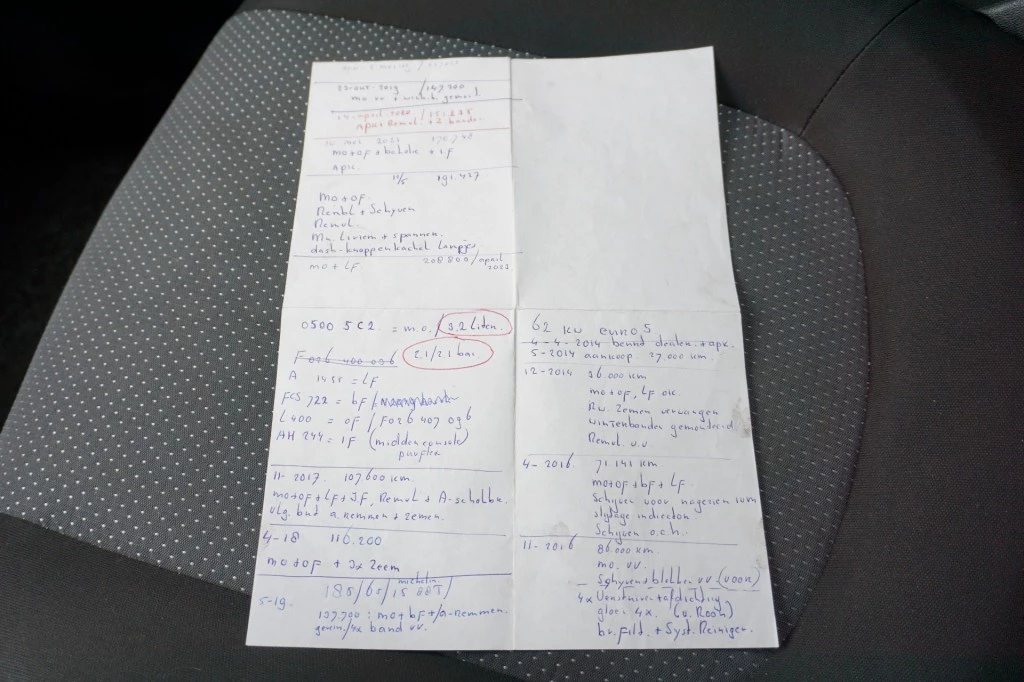 22-okt-2019 /147.300
mo vv + wielb. gemont.
14-april-2020 / 151.225
Apk + Remvl. + 2 banden
10 mei 2021 170.748
mo+of + + LF
Apk.
11/5 191.427
mo+of.
Rembl + Schyven
Remvl.
Mu. Liniem + spannen.
dash-knoppenkachel Lampjes
mo + LF 208800/april 2023
0500 5C2. = m.o./ 3.2 Liter.
F 026 400 036 2.1/2.1 bar.
A 1455 = LF
FCS 722 = bF /
L400 = oF / F026 407 096
AH 244 = IF (middenconsole
11-2017. 107600 km.
mo+of+LF+IF, Remvl + A-schelba.
vlg. bud a. remmen + zemen.
4-18 116.200
mo+oF + 3x Zeem
5-19. 185/65/15 88T/ michelin
137.790 : mo+bF+/a-remmen.
gerein./4x band vv.
62 kw euro 5
4-4-2014 beurt dealer + apk.
5-2014 aankoop. 27.000 km.
12-2014 36.000 km
mo+of, LF ok.
Rw. Zemen vervangen
winterbanden gemonteerd
Remvl. v.v.
4-2016. 71.141 km
mo+of+bf+LF.
Schyven voor nagezien ivm
slytage indicator.
Schyven o.c.h.
11-2016 86.000 km.
mo. vv.
Schyven + blokken vv (voor)
4x Verstuiver + afdichting
gloei 4x. (v. Roon)
br. Filt. + Syst. Reiniger.